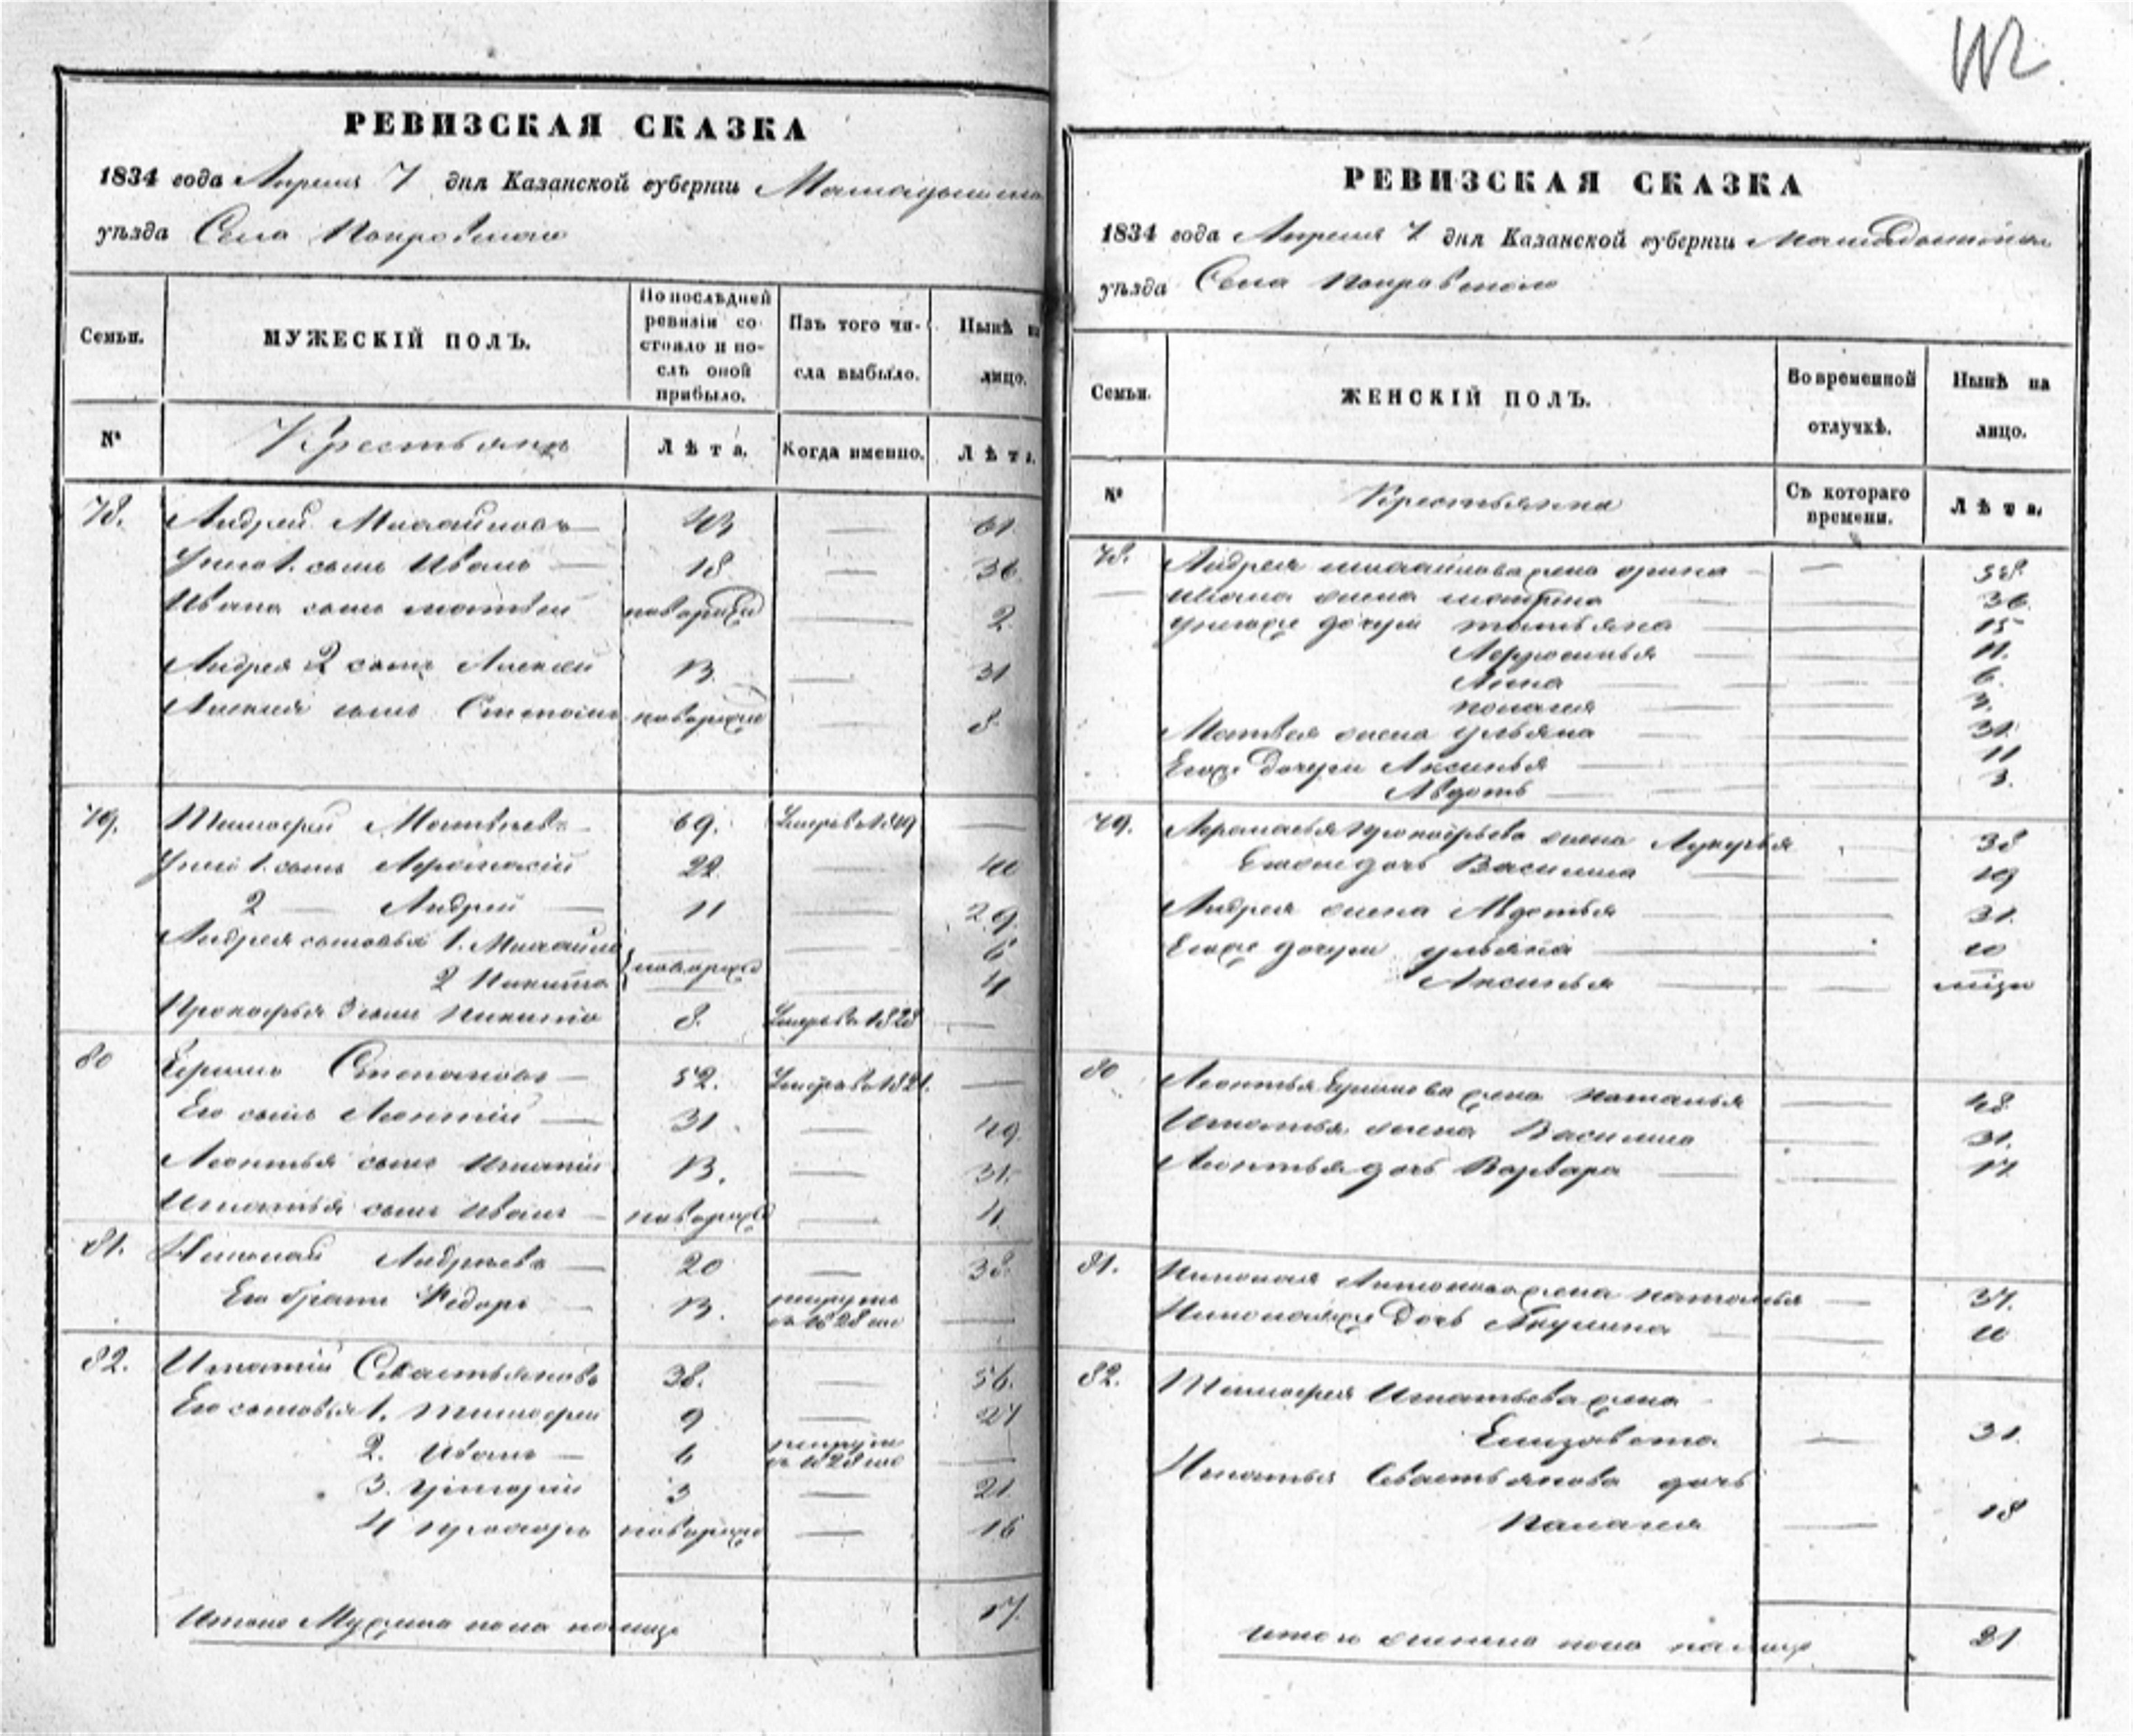 РЕВИЗСКАЯ СКАЗКА
1834 года Апреля 7 дня Казанской губернiи
уѣзда Села Покровскаго
Семьи.
МУЖЕСКIЙ ПОЛЪ.
По послѣдней ревизiи со-
стояло и по-
слѣ оной
прибыло.
Изъ того чи-
сла выбыло.
Нынѣ на
лицо.
№
Крестьянъ
Лѣта.
Когда именно.
Лѣта.
78. Андрей Михайловъ 43 — 61.
У него 1. сынъ Иванъ — 18 — 36
Ивана сынъ Матвей новорожд — 2
Андрея 2 сынъ Алексей 13. — 31
Алексея сынъ Степанъ новорожд — 8
79. Тимофей Матвѣевъ 69. —
У него 1. сынъ Афонасiй 22 — 40
2 — Андрей — 11 — 29.
Андрея сыновья 1. Михайла — 6
2 Никита новорожд — 4
Прокофья 3 сынъ Никита 8. Умеръ в 1828 —
80 Ермила Степановъ — 52. Умеръ в 1821. —
Его сынъ Леонтiй — 31 — 49
Леонтья сынъ Игнатiй 13. — 31.
Игнатья сынъ Иванъ — новорожд — 4
81. Николай Андреевъ — 20 — 38.
Его братъ Федоръ — 13. рекрутъ
въ 1828 —
82. Игнатiй Севастьяновъ 38. — 56.
Его сыновья 1. Тимофей 9 — 27
2. Иванъ — 6 рекрутъ
въ 1828 —
3. Григорiй 3 — 21
4 новорожд — 16
Итого Мужеска пола на лицо 17
РЕВИЗСКАЯ СКАЗКА
1834 года Апреля 7 дня Казанской губернiи
уѣзда Села Покровскаго
Семьи.
ЖЕНСКIЙ ПОЛЪ.
Во временной
отлучкѣ.
Нынѣ на
лицо.
№
Съ котораго
времени.
Лѣта.
78. Андрея Михайлова жена Орина — 58.
Ивана жена Матрена — 36.
У него же дочери Татьяна — 15
Афросинья — 11.
Анна — 6.
Полагея — 3.
жена Ульяна — 31.
Его же дочери Аксинья — 11
Авдоть — 3.
79. жена Лукерья 38
дочь Василиса — 19
Андрея жена Авдотья — 31.
Его же дочери Ульяна — 10
Аксинья —
80 Леонтья Ермилова жена Наталья — 48
Игнатья жена Василиса — 31.
Леонтья дочь Варвара — 17
81. Николая жена Наталья — 37.
дочь Акулина — 10
82. Тимофея Игнатьева жена
Елизавета — 31.
Игнатья Севастьянова дочь
Палагея — 18
Итого женска пола на лицо 21